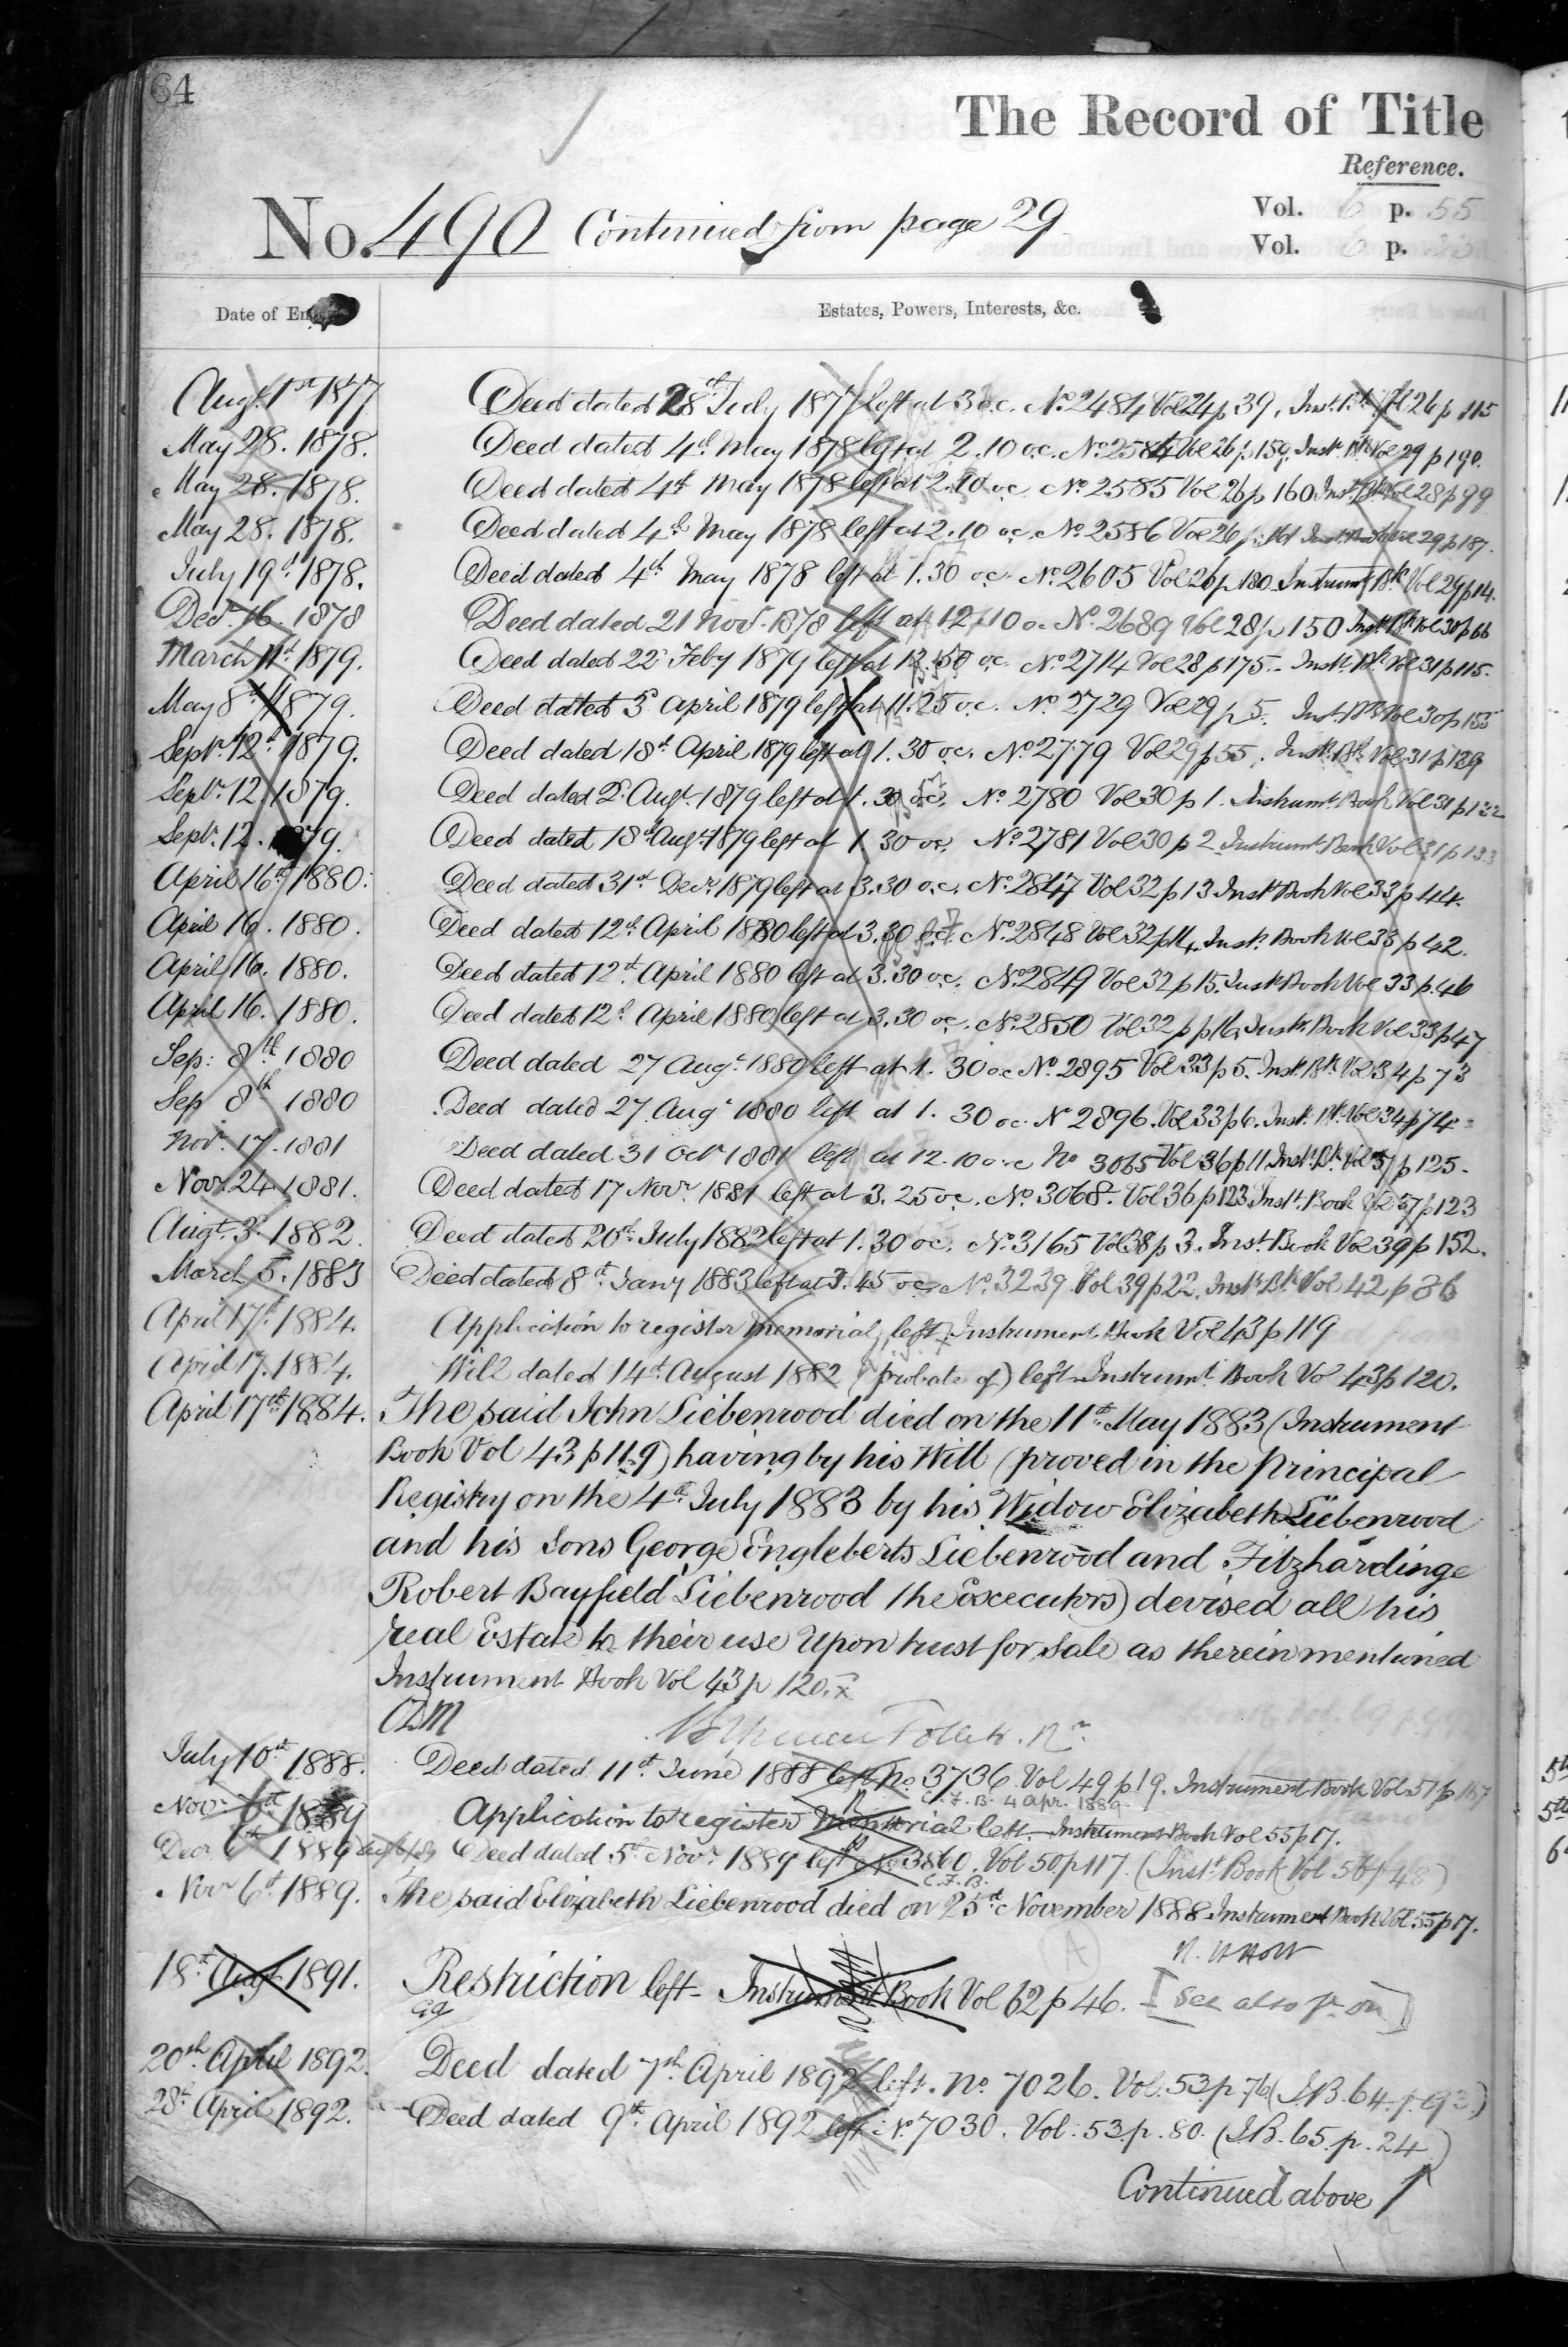 64
The Record of Title
Reference.
Vol. 6 p. 55
No. 490 Continued from page 29
Vol. 6 p.
Date of En
Estates, Powers, Interests, &c.
Augt. 1st 1877 Deed dated 28th July 1877 left at 3 o.c. No. 2484 Vol 24 p 39, Inst. Bk. Vol 26 p 115
May 28. 1878. Deed dated 4th May 1878 left at 2.10 o.c. No. 2584 Vol 26 p 159, Inst. Bk. Vol 29 p 190.
May 28. 1878. Deed dated 4th May 1878 left at 2.10 o.c. No. 2585 Vol 26 p 160 Inst. Bk Vol 28 p 99
May 28. 1878. Deed dated 4th May 1878 left at 2.10 o.c. No. 2586 Vol 26 p. 161 Inst. Bk Vol 29 p 187.
July 19th 1878. Deed dated 4th May 1878 left at 1.30 o.c. No. 2605 Vol 26 p 180 Instrumt Bk. Vol 29 p 14.
Decr. 16. 1878 Deed dated 21 Novr. 1878 left at 12.10 o.c. No. 2689 Vol 28 p 150 Inst. Bk Vol 30 p 66
March 11th 1879. Deed dated 22d Feby 1879 left at 12.50 o.c. No. 2714 Vol 28 p 175. Inst. Bk. Vol 31 p 115.
May 8th 1879. Deed dated 3d April 1879 left at 11.25 o.c. No. 2729 Vol 29 p 5. Inst. Bk Vol 30 p 155
Septr. 12th 1879. Deed dated 18th April 1879 left at 1.30 o.c. No. 2779 Vol 29 p 55. Inst. Bk. Vol 31 p 129
Septr. 12. 1879. Deed dated 2d Augt. 1879 left at 1.30 o.c. No. 2780 Vol 30 p 1. Instrumt. Book Vol 31 p 132
Septr. 12. 1879. Deed dated 18th Augt. 1879 left at 1.30 o.c. No. 2781 Vol 30 p 2 Instrumt. Book Vol 31 p 133
April 16th 1880. Deed dated 31st Decr. 1879 left at 3.30 o.c. No. 2847 Vol 32 p 13 Inst. Book Vol 33 p 44.
April 16. 1880. Deed dated 12th April 1880 left at 3.30 o.c. No. 2848 Vol 32 p 14, Inst. Book Vol 33 p 42.
April 16. 1880. Deed dated 12th April 1880 left at 3.30 o.c. No. 2849 Vol 32 p 15. Inst. Book Vol 33 p. 46
April 16. 1880. Deed dated 12th April 1880 left at 3.30 o.c. No. 2850 Vol 32 p 16, Inst. Book Vol 33 p 47
Sep: 8th 1880 Deed dated 27 Augt. 1880 left at 1.30 o.c No. 2895 Vol 33 p 5. Inst. Bk. Vol 34 p 73
Sep 8th 1880 Deed dated 27 Augt 1880 left at 1.30 o.c. No 2896. Vol 33 p 6. Inst. Bk. Vol 34 p 74
Novr. 17. 1881 Deed dated 31 Octr 1881 left at 12.10 o.c No 3065 Vol 36 p 11 Inst. Bk. Vol 37 p 125.
Novr 24. 1881. Deed dated 17 Novr. 1881 left at 3.25 o.c. No. 3068. Vol 36 p 123 Inst. Book Vol 37 p 123
Augt. 3d. 1882. Deed dated 20th July 1882 left at 1.30 o.c. No. 3165 Vol 38 p 3. Inst. Book Vol 39 p 152.
March 5. 1883 Deed dated 8th Jany 1883 left at 3.45 o.c. No. 3239 Vol 39 p 22, Inst. Bk Vol 42 p 86
April 17th 1884. Application to register Memorial left Instrument Book Vol 43 p 119
April 17. 1884. Will dated 14th August 1882 (probate of) left Instrumt. Book Vo 43 p 120.
April 17th 1884. The said John Liebenrood died on the 11th May 1883 (Instrument
Book Vol 43 p 119) having by his Will (proved in the Principal
Registry on the 4th July 1883 by his Widow Elizabeth Liebenrood
and his Sons George Engleberts Liebenrood and Fitzhardinge
Robert Bayfield Liebenrood the Executors) devised all his
real Estate to their use Upon trust for Sale as therein mentioned
Instrument Book Vol 43 p 120.
July 10th 1888. Deed dated 11th June 1888 left No. 3736 Vol 49 p 19. Instrument Book Vol 51 p 167
C. F. B. 4 Apr. 1889.
Novr 6th 1889 Application to register Memorial left. Instrument Book Vol 55 p 17.
Decr 6th 1889 Deed dated 5th Novr. 1889 left No 3860. Vol 50 p 117. (Inst. Book Vol 56 p 48)
C. F. B.
Novr 6th 1889. The said Elizabeth Liebenrood died on 25th November 1888 Instrument Book Vol. 55 p 17.
18th Augt 1891. Restriction left Instrument Book Vol 62 p 46. [See also p on]
(A)
20th April 1892. Deed dated 7th April 1892 left. No. 7026. Vol. 53 p 76 (I.B. 64. p. 93.)
28th April 1892. Deed dated 9th April 1892 left No. 7030. Vol: 53. p. 80. (I.B. 65. p. 24)
Continued above